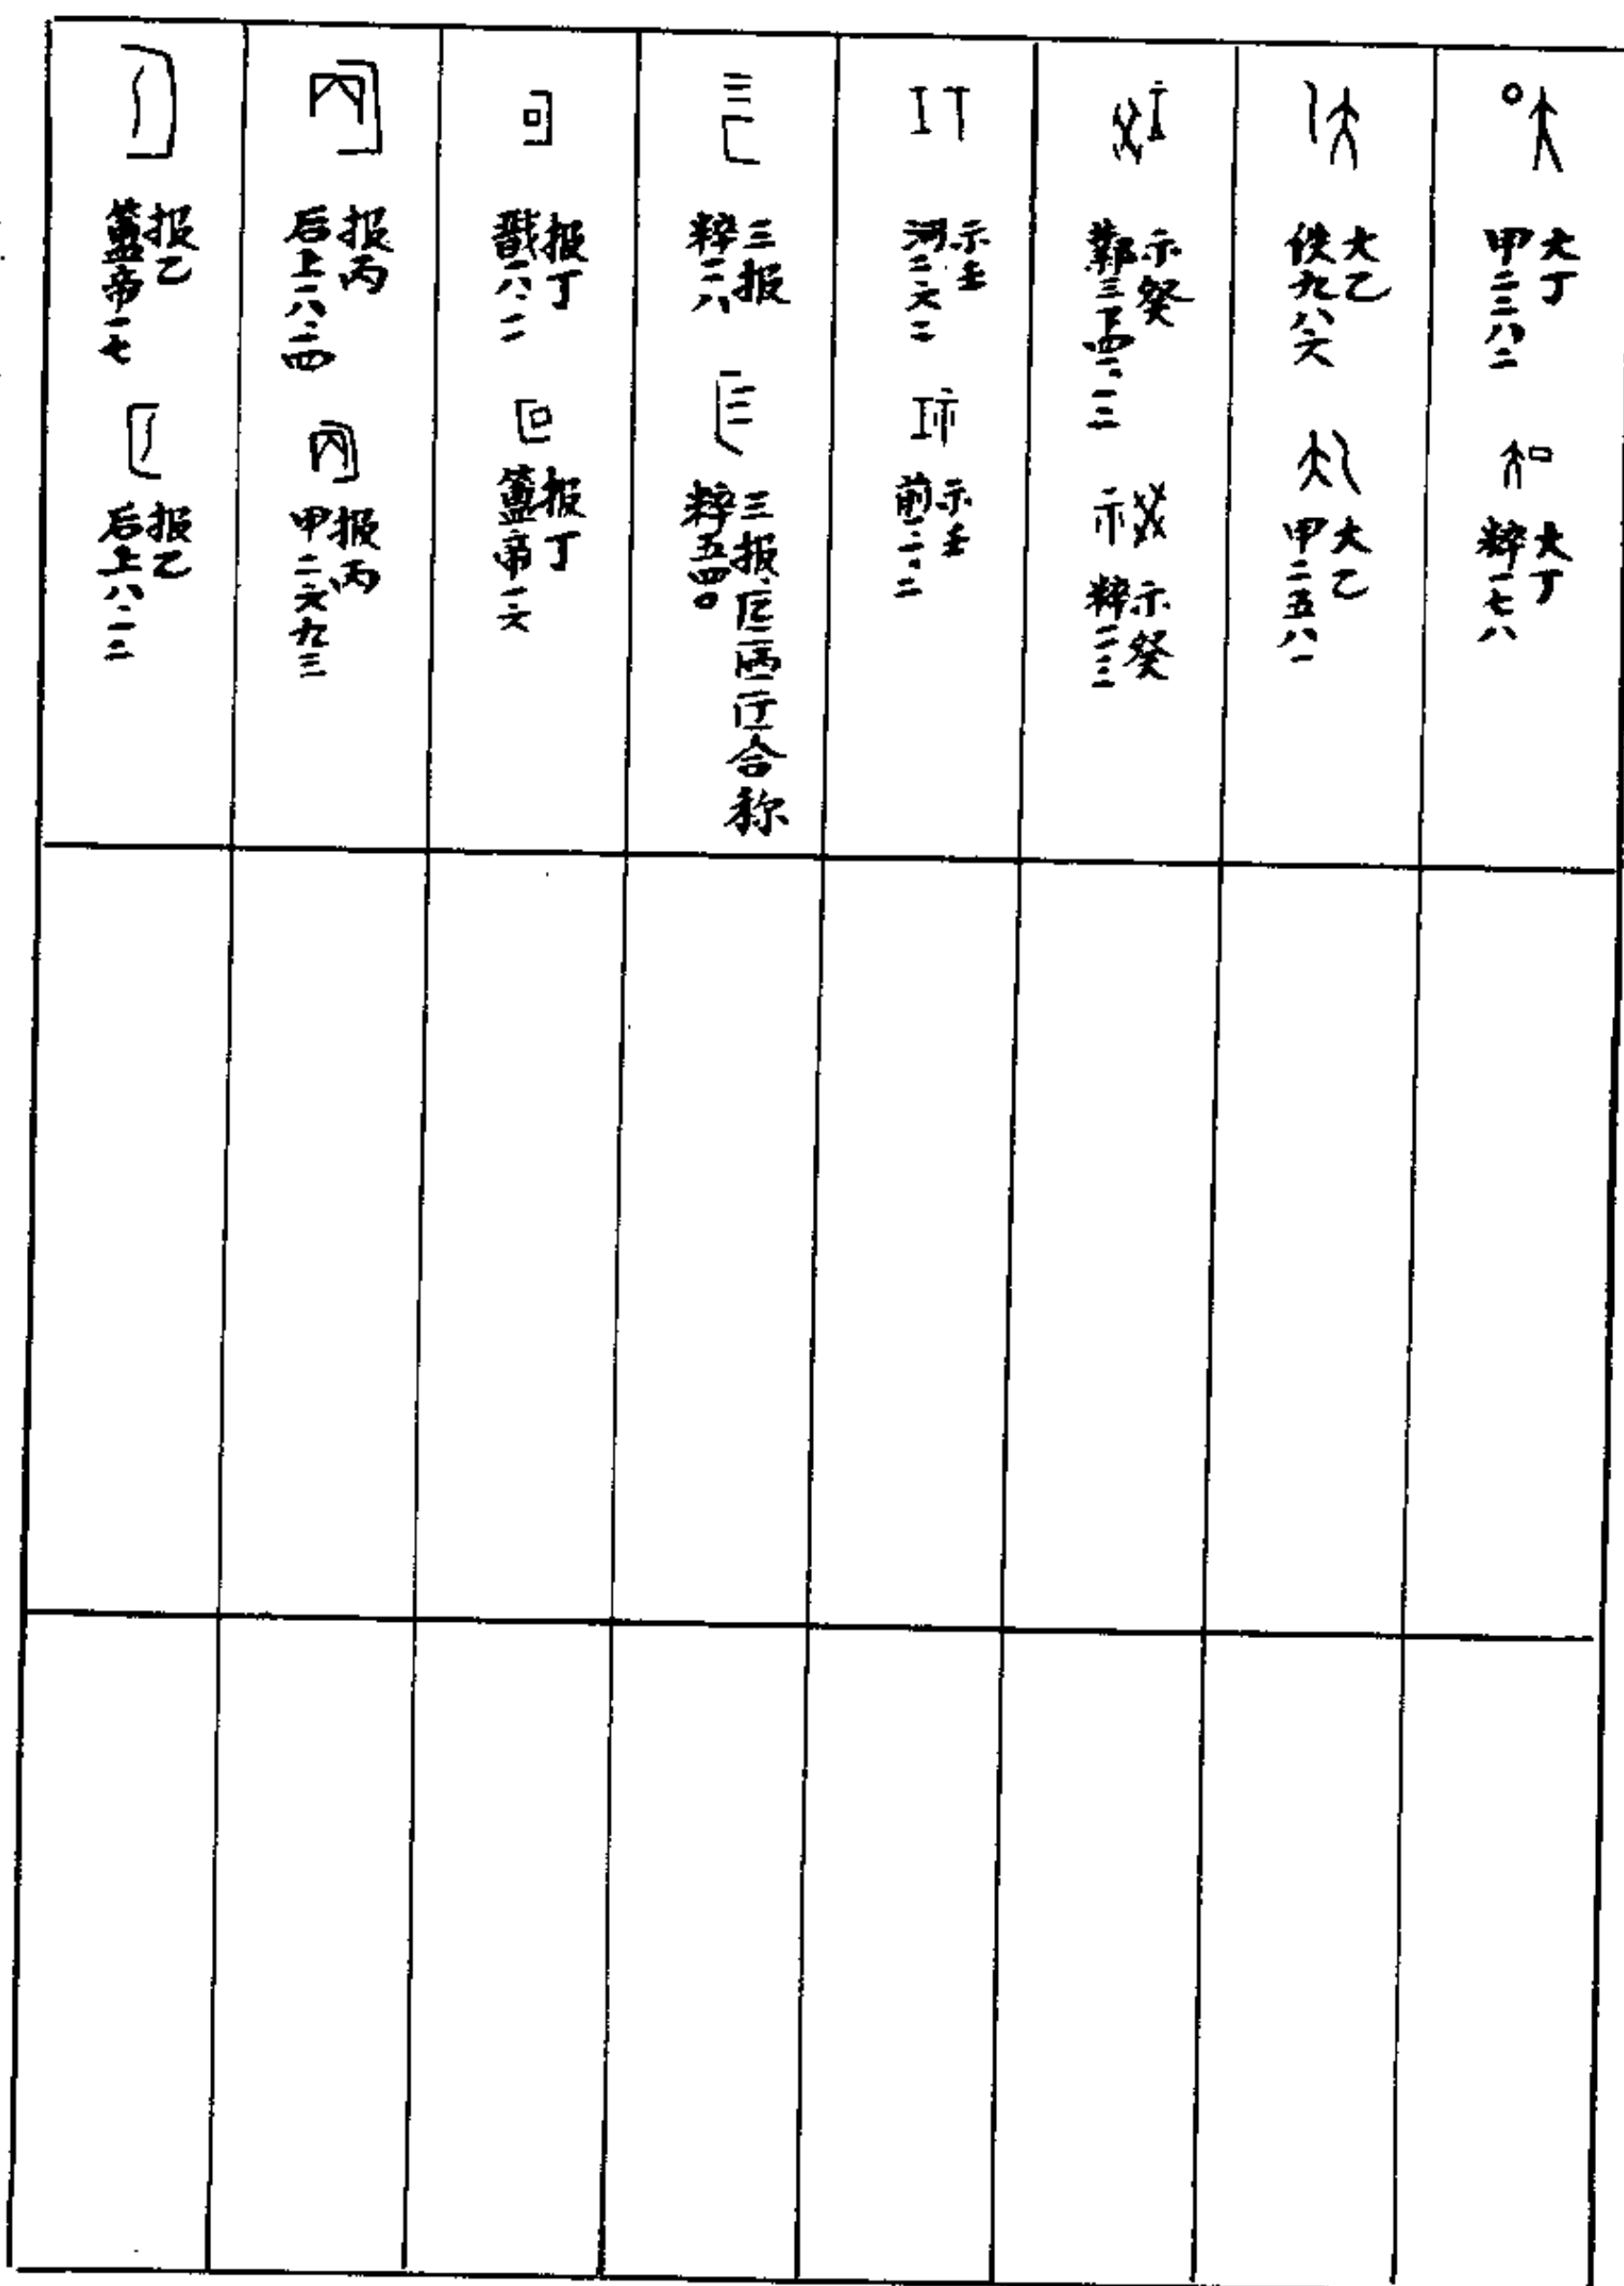 大丁
甲二三八二
大丁
粹一七八
大乙
佚九八六
大乙
甲二五八一
示癸
鄴三下四二·三
示癸
粹一三三
示壬
示壬
前一·一·二
三报
粹三八
三报
粹五四〇
合称
报丁
戬六·二
报丁
簠帝一六
报丙
后上八·一四
报丙
甲二六九三
报乙
簠帝一七
报乙
后上八·一二